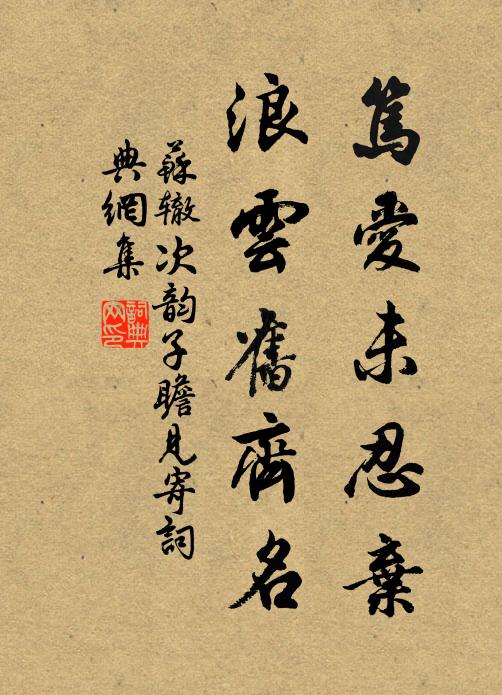 篤愛未忍棄
浪雲舊齊名
蘇辙次韵子瞻見寄詞
典網集
詞典
网印